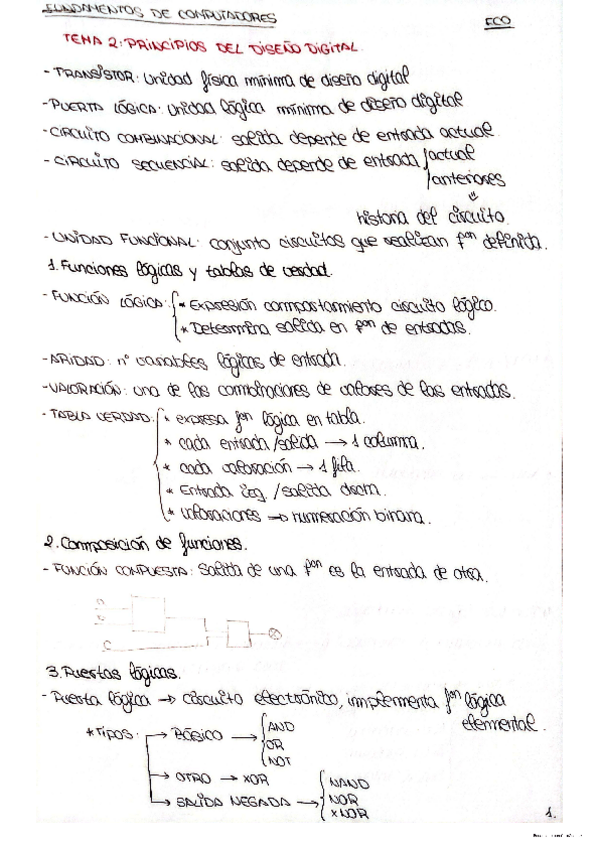 FUNDAMENTOS DE COMPUTADORES
FCO
TEMA 2: PRINCIPIOS DEL DISEÑO DIGITAL.
- TRANSISTOR: Unidad física mínima de diseño digital
- PUERTA LÓGICA: Unidad lógica mínima de diseño digital
- CIRCUITO COMBINACIONAL: salida depende de entrada actual.
- CIRCUITO SECUENCIAL: salida depende de entrada actual
anteriores
historia del circuito.
- UNIDAD FUNCIONAL: conjunto circuitos que realizan fᵒⁿ definida.
1. Funciones lógicas y tablas de verdad.
- FUNCIÓN LÓGICA: * Expresión comportamiento circuito lógico.
* Determina salida en fᵒⁿ de entradas.
- ARIDAD: nº variables lógicas de entrada.
- VALORACIÓN: una de las combinaciones de valores de las entradas.
- TABLA VERDAD: * expresa fᵒⁿ lógica en tabla.
* cada entrada/salida → 1 columna.
* cada valoración → 1 fila.
* Entrada izq. / salida dcta.
* valoraciones → numeración binaria.
2. Composición de funciones.
- FUNCIÓN COMPUESTA: Salida de una fᵒⁿ es la entrada de otra.
a
b
c
3. Puertas lógicas.
- Puerta lógica → circuito electrónico, implementa fᵒⁿ lógica
elemental.
* TIPOS: → BÁSICO → AND
OR
NOT
→ OTRO → XOR
→ SALIDA NEGADA → NAND
NOR
XNOR
1.